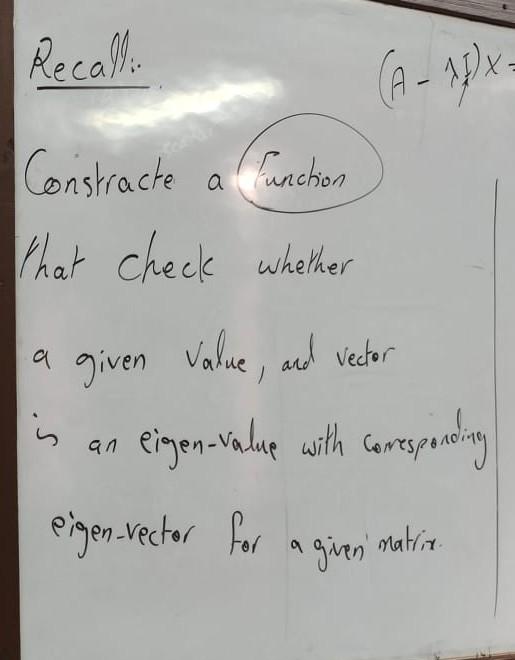 Recall:
(A - λI)X =
Constracte a function
that check whether
a given value, and vector
is an eigen-value with corresponding
eigen-vector for a given matrix.